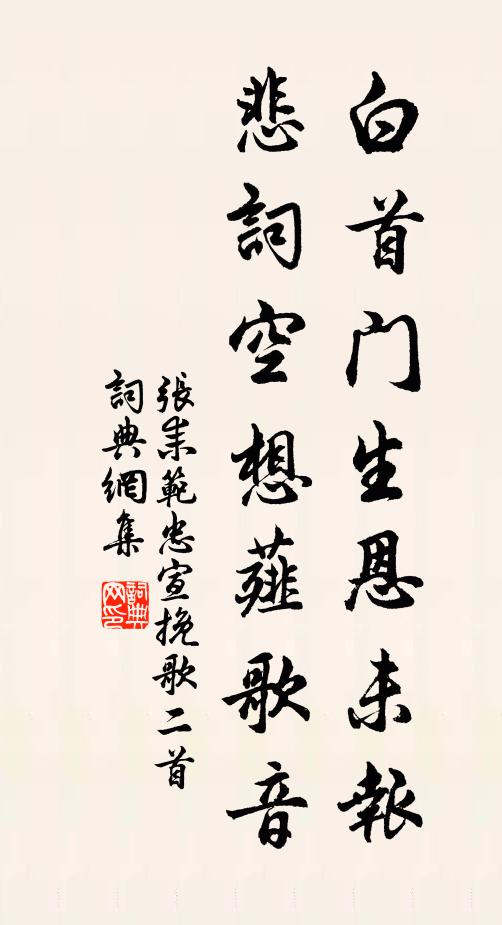 白首门生恩未報
悲詞空想薤歌音
張耒範忠宣挽歌二首
詞典網集
詞典网印